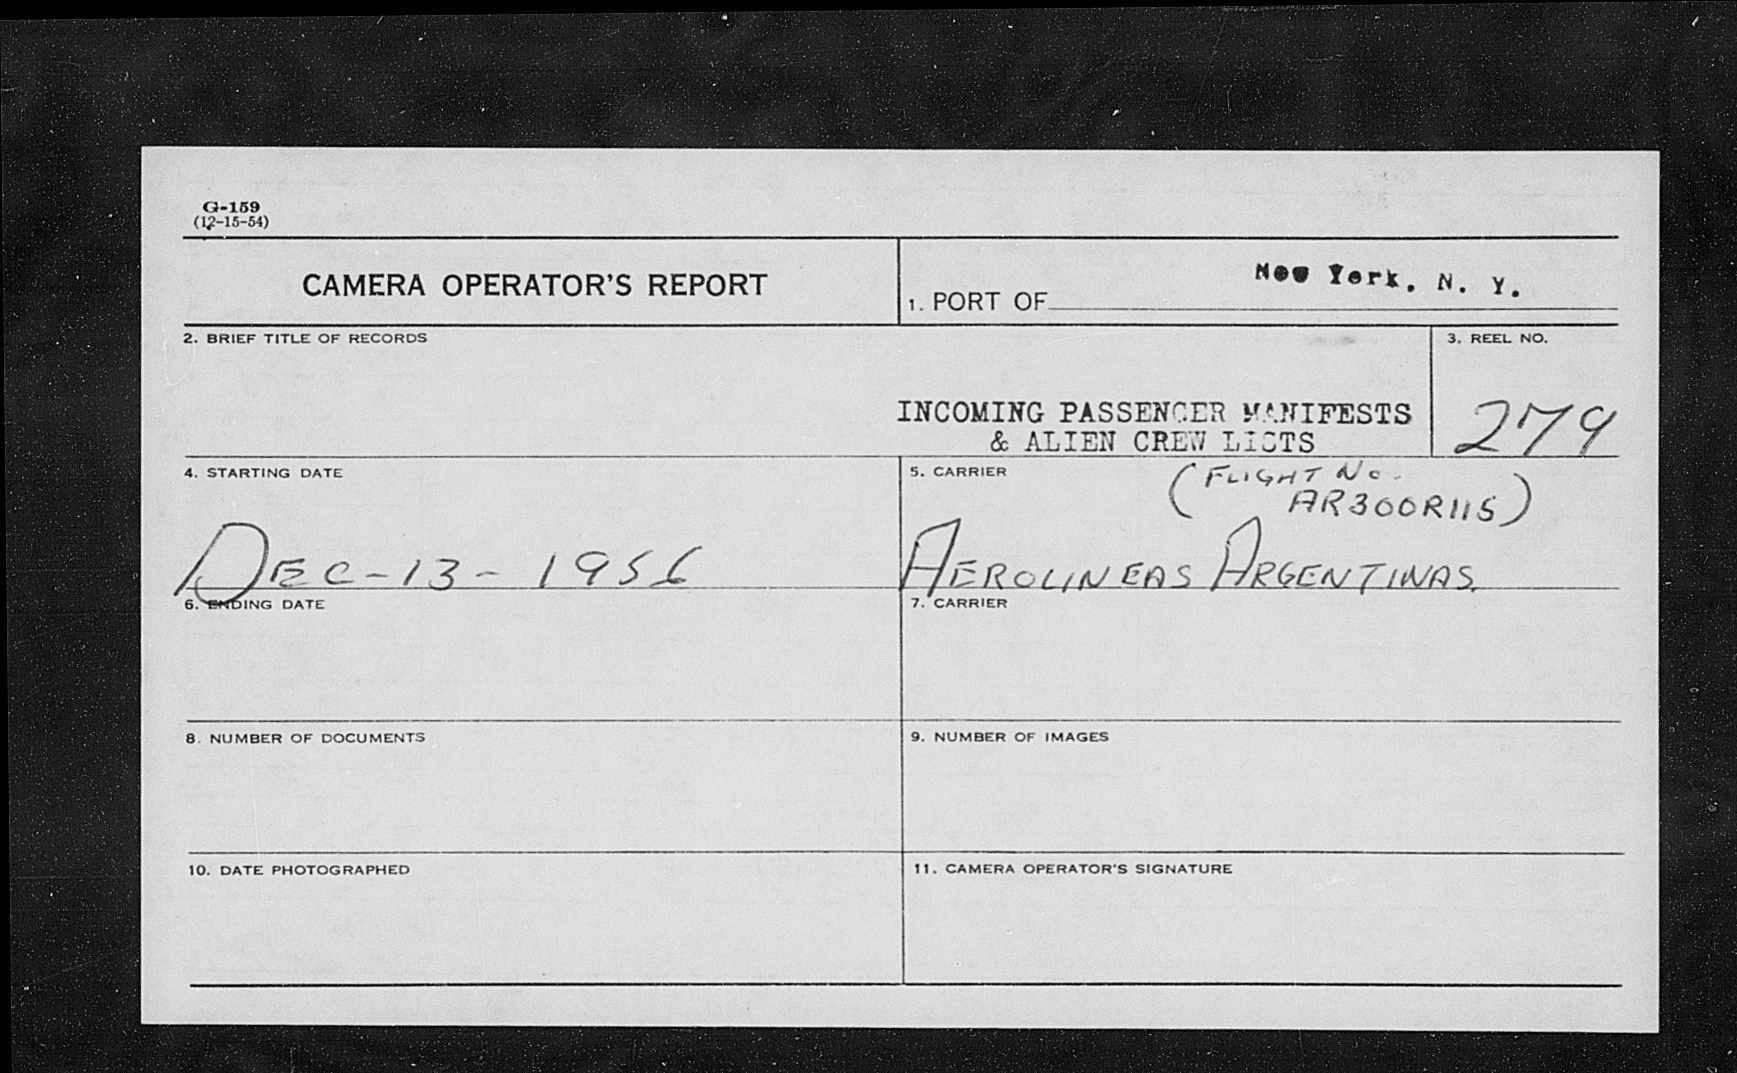 G-159
(12-15-54)
CAMERA OPERATOR'S REPORT
1. PORT OF New York, N. Y.
2. BRIEF TITLE OF RECORDS
INCOMING PASSENGER MANIFESTS
& ALIEN CREW LISTS
3. REEL NO.
279
4. STARTING DATE
DEC-13-1956
5. CARRIER
(FLIGHT No.
AR300R115)
AEROLINEAS ARGENTINAS.
6. ENDING DATE
7. CARRIER
8. NUMBER OF DOCUMENTS
9. NUMBER OF IMAGES
10. DATE PHOTOGRAPHED
11. CAMERA OPERATOR'S SIGNATURE